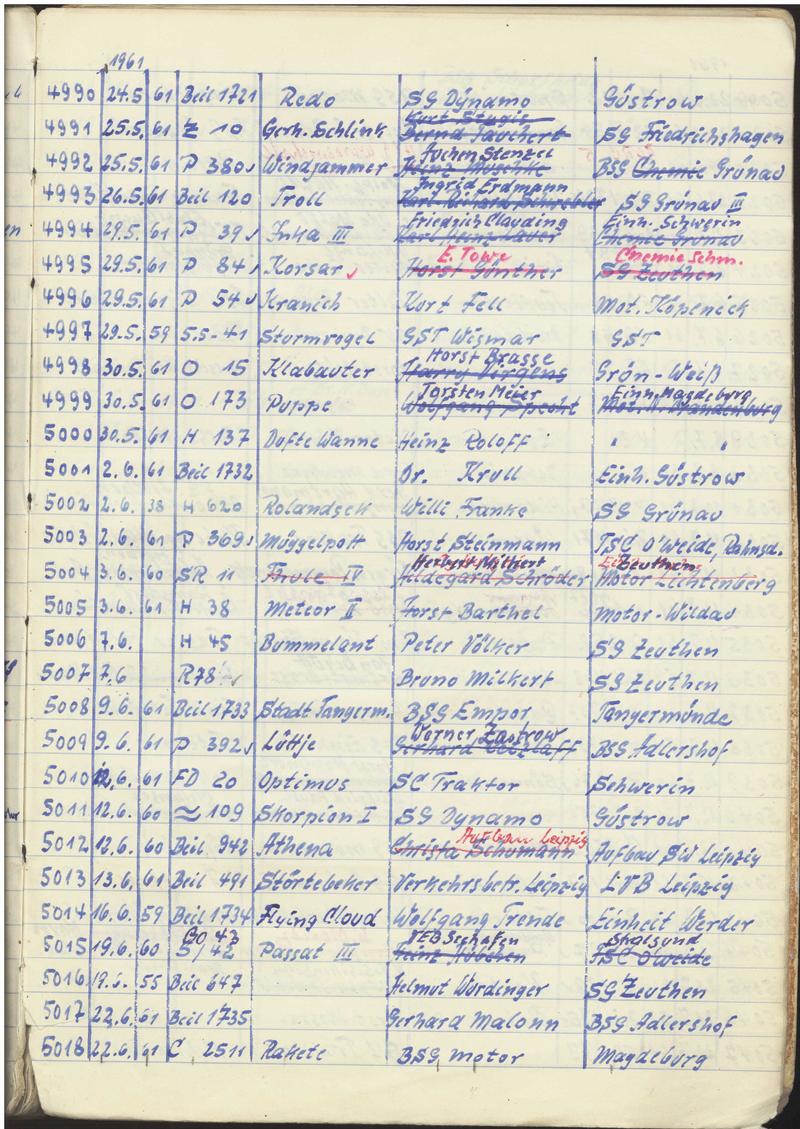 1961
4990 24.5 61 Beil 1721 Redo SG Dynamo Güstrow
Kurt Stugie
4991 25.5. 61 Z 10 Gerh. Schlink Bernd Täuchert SG Friedrichshagen
Jochen Stenzel
4992 25.5. 61 P 380 Windjammer Heinz Muschke BSG Chemie Grünau
Ingrid Erdmann
4993 26.5. 61 Beil 120 Troll Karl Richard Schrebler SG Grünau III
Friedrich Clauding Einh. Schwerin
4994 29.5. 61 P 39 Inka III Karl Heinz Chemie Grünau
E. Towe Chemie Schm.
4995 29.5. 61 P 84 Korsar Horst Günther SG Zeuthen
4996 29.5. 61 P 54 Kranich Kurt Fell Mot. Köpenick
4997 29.5. 59 5.5-41 Sturmvogel GST Wismar GST
Horst Brasse
4998 30.5. 61 O 15 Klabauter Harry Jürgens Grün-Weiß
Torsten Meier Einh. Magdeburg
4999 30.5. 61 O 173 Puppe Wolfgang Specht Mot. Brandenburg
5000 30.5. 61 H 137 Dufte Wanne Heinz Roloff "
5001 2.6. 61 Beil 1732 Dr. Krull Einh. Güstrow
5002 2.6. 38 H 620 Rolandseck Willi Franke SG Grünau
5003 2.6. 61 P 369 Müggelpott Horst Steinmann TSC O'Weide, Rahnsd.
Herbert Zeuthen
5004 3.6. 60 SR 11 Thule IV Hildegard Schröder Motor Lichtenberg
5005 3.6. 61 H 38 Meteor II Horst Barthel Motor-Wildau
5006 7.6. H 45 Bummelant Peter Völker SG Zeuthen
5007 7.6 R78 Bruno Milkert SG Zeuthen
5008 9.6. 61 Beil 1733 Stadt Tangerm. BSG Empor Tangermünde
Werner Zastrow
5009 9.6. 61 P 392 Lüttje Gerhard BSG Adlershof
5010 12.6. 61 FD 20 Optimus SC Traktor Schwerin
5011 12.6. 60 ≈ 109 Skorpion I SG Dynamo Güstrow
Aufbau Leipzig
5012 12.6. 60 Beil. 942 Athena Christa Schumann Aufbau SW Leipzig
5013 13.6. 61 Beil 491 Störtebeker Verkehrsbetr. Leipzig LVB Leipzig
5014 16.6. 59 Beil 1734 Flying Cloud Wolfgang Trende Einheit Werder
GO 42 VEB Seehafen Stralsund
5015 19.6. 60 S/42 Passat III Heinz TSC O'weide
5016 19.6. 55 Beil 647 Helmut Wurdinger SG Zeuthen
5017 22.6. 61 Beil 1735 Gerhard Malonn BSG Adlershof
5018 22.6. 61 C 2511 Rakete BSG Motor Magdeburg